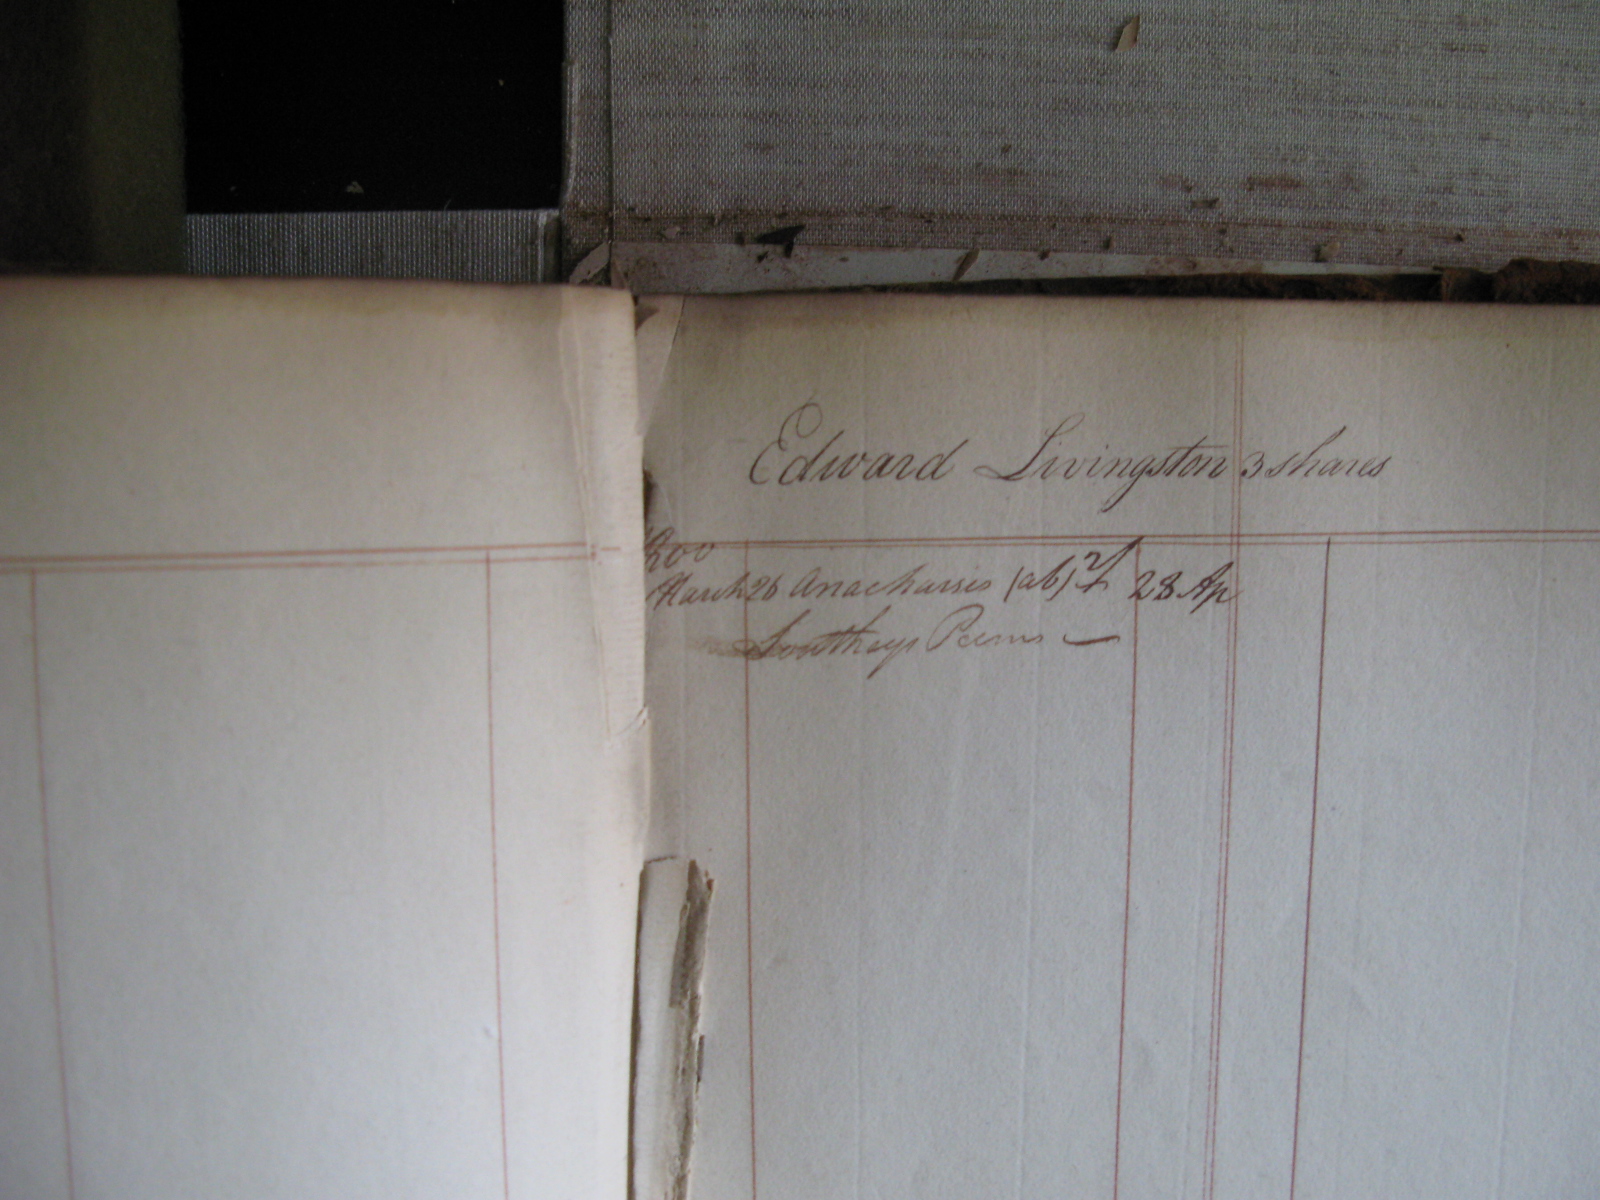 Edward Livingston 3 shares
1800
March 26 Anacharsis (ab) 2f 28 Ap
Southeys Poems —